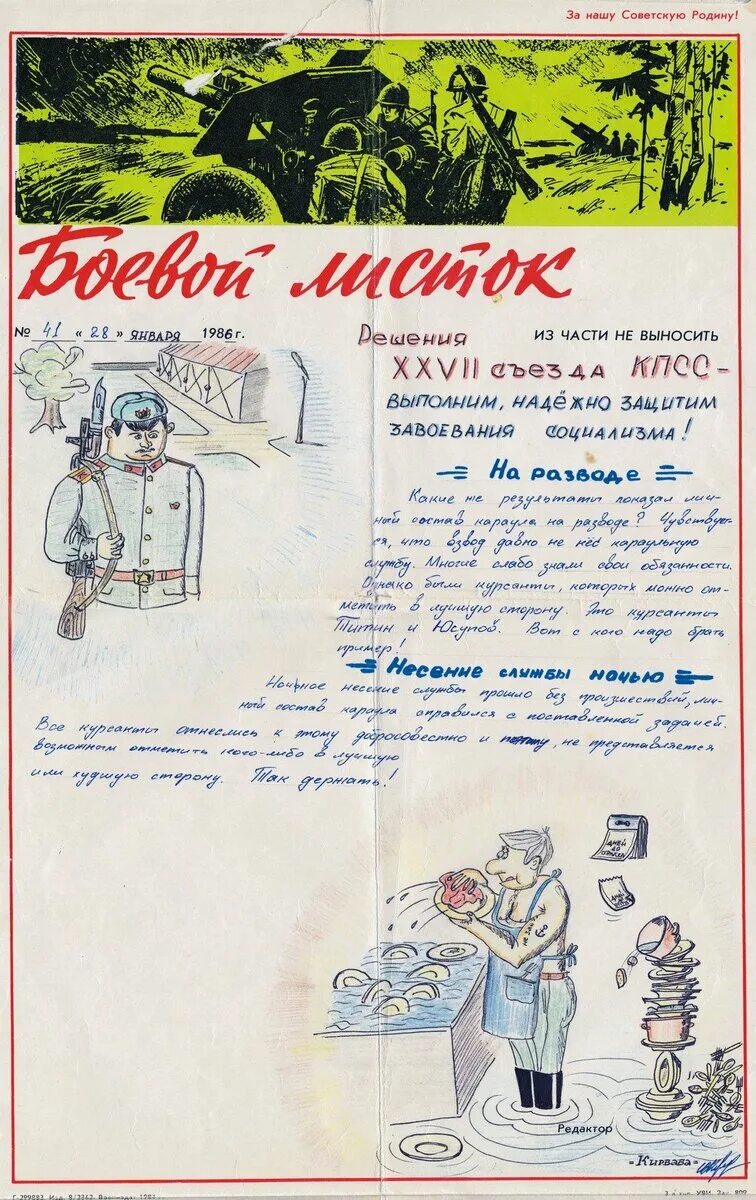 За нашу Советскую Родину!
Боевой листок
№ 41 «28» января 1986 г.
ИЗ ЧАСТИ НЕ ВЫНОСИТЬ
Решения
XXVII съезда КПСС -
выполним, надёжно защитим
завоевания социализма!
На разводе
Какие же результаты показал лич-
ный состав караула на разводе? Чувствует-
ся, что взвод давно не нёс караульную
службу. Многие слабо знали свои обязанности.
Однако были курсанты, которых можно от-
метить в лучшую сторону. Это курсанты
Титин и Юсупов. Вот с кого надо брать
пример!
Несение службы ночью
Ночное несение службы прошло без происшествий, лич-
ный состав караула справился с поставленной задачей.
Все курсанты отнеслись к этому добросовестно и поэтому, не представляется
возможным отметить кого-либо в лучшую
или худшую сторону. Так держать!
ДНЕЙ
ДО
ДНЕЙ
Редактор
"Кирваба"